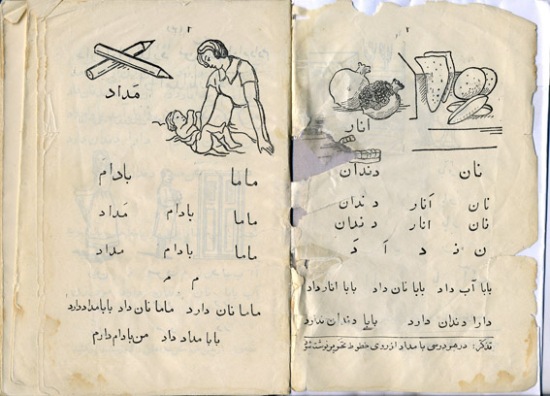 ۲
انار
نان دندان
نان اَنار دندان
نان انار دندان
ن ز د آ دَ
بابا آب داد بابا نان داد بابا انار داد
دارا دندان دارد بابا دندان ندارد
تذکر: در هر درسی با مداد از روی خطوط
مَداد
ماما بادام
ماما بادام مَداد
ماما بادام مداد
م مـ
ماما نان دارد ماما نان داد بابا مداد دارد
بابا مداد داد من بادام دارم